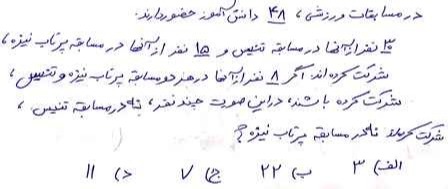 در مسابقات ورزشی، ۴۸ دانش آموز حضور دارند.
۳۰ نفر از آنها در مسابقه تنیس و ۱۵ نفر از آنها در مسابقه پرتاب نیزه،
شرکت کرده اند. اگر ۸ نفر از آنها در هر دو مسابقه پرتاب نیزه و تنیس،
شرکت کرده باشند، در این صورت چند نفر، نه در مسابقه تنیس،
شرکت کرده‌اند نه در مسابقه پرتاب نیزه؟
الف) ۳ ب) ۲۲ ج) ۷ د) ۱۱